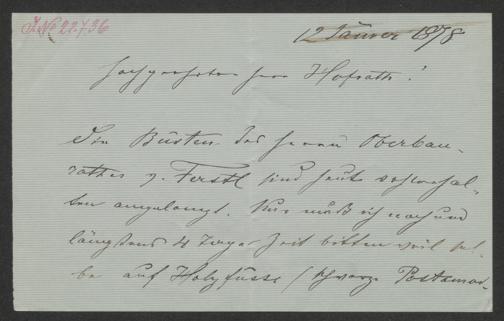 I.N. 22.436
12 Jänner 1878
Hochgeehrter Herr Hofrath!
Die Büsten des Herrn Oberbau-
rathes v. Ferstl sind heute wohlerhal-
ten angelangt. Nun muß ich noch um
längstens 4 Tage Zeit bitten weil sel-
be auf Holzfüsse (schwarze Postamen-